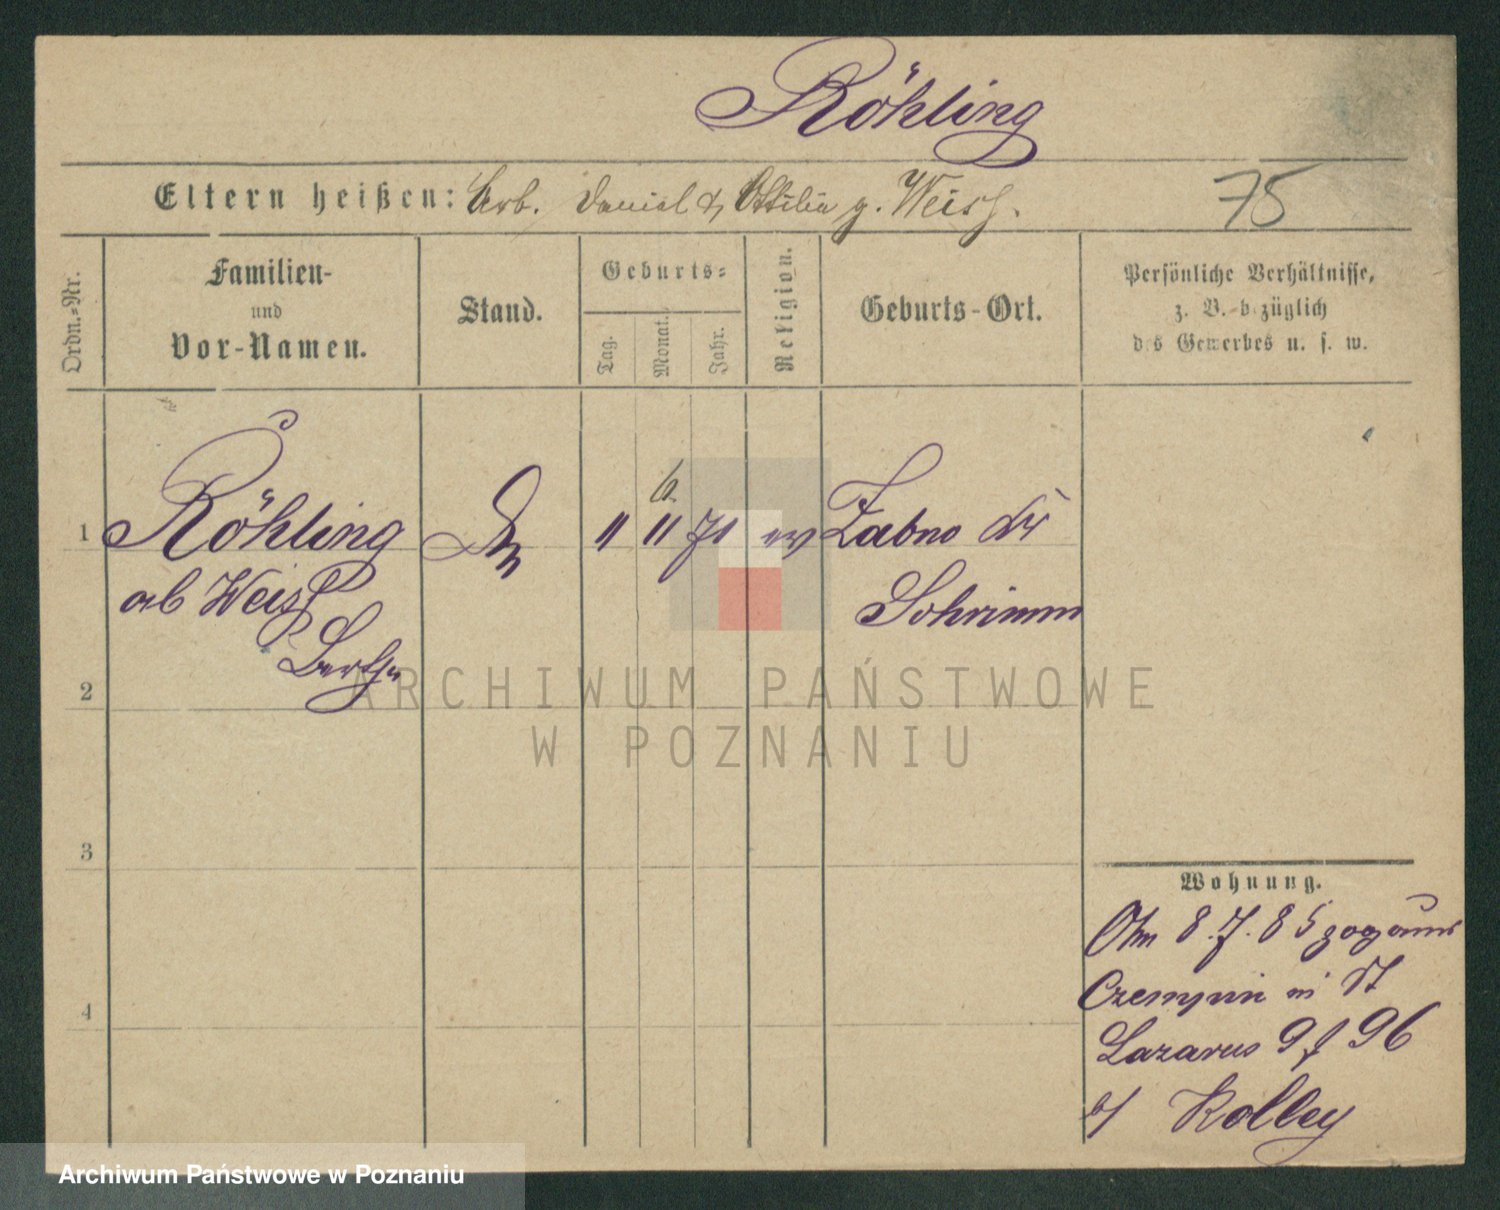 Röhling
Eltern heißen: Arb. Daniel & Ottilia g. Weiss.
75
Ordn.-Nr.
Familien-
und
Vor-Namen.
Stand.
Geburts=
Tag.
Monat.
Jahr.
Religion.
Geburts-Ort.
Persönliche Verhältnisse,
z. B. bezüglich
des Gewerbes u. s. w.
6
1 Röhling 11 11 71 ev Zabno Kr
ab Weiss Schrimm
Bertha
2
3
4
Wohnung.
8.7.85 gog aus
Czempin in St
Lazarus 9 f 96
b/ Kolley
ARCHIWUM PAŃSTWOWE
W POZNANIU
Archiwum Państwowe w Poznaniu